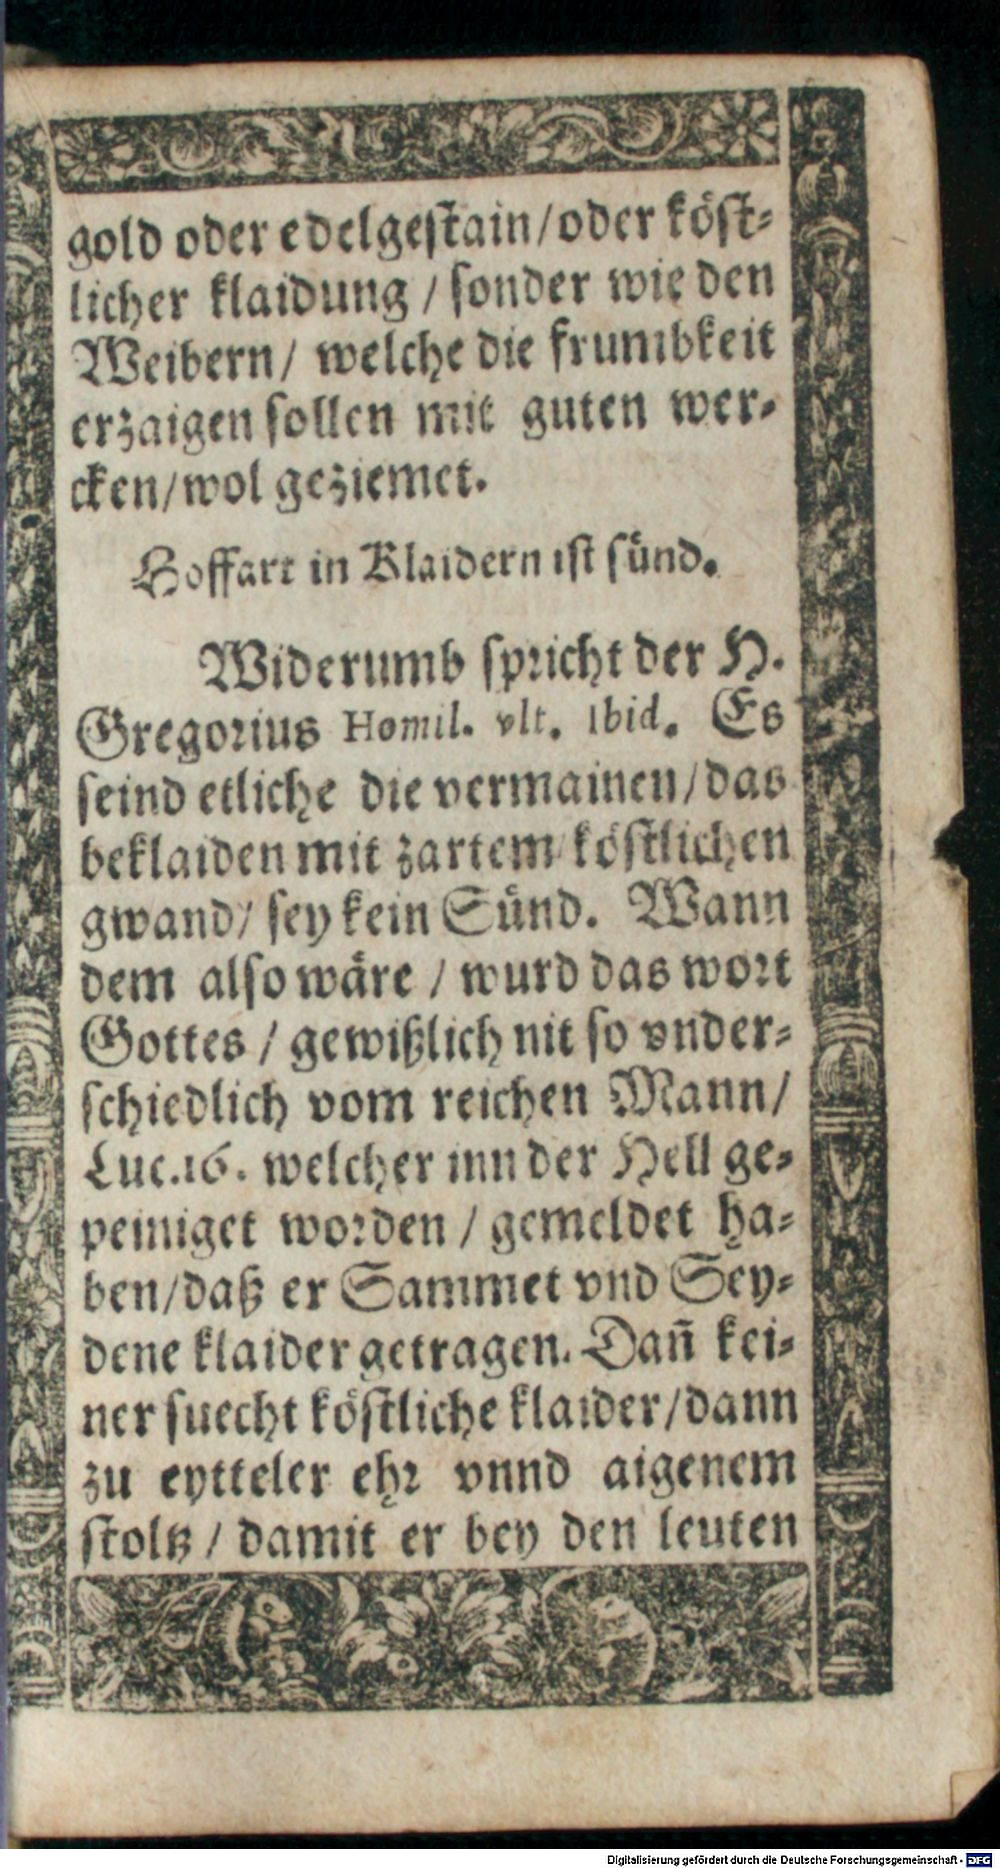 gold oder edelgestain/oder köst⸗
licher klaidung / sonder wie den
Weibern/ welche die frumbkeit
erzaigen sollen mit guten wer⸗
cken/wol geziemet.
Hoffart in Klaidern ist sünd.
Widerumb spricht der H.
Gregorius Homil. vlt. Ibid. Es
seind etliche die vermainen/das
beklaiden mit zartem köstlichen
gwand/ sey kein Sünd. Wann
dem also wäre / wurd das wort
Gottes / gewißlich nit so vnder⸗
schiedlich vom reichen Mann/
Luc.16. welcher inn der Hell ge⸗
peiniget worden / gemeldet ha⸗
ben/daß er Sammet vnd Sey⸗
dene klaider getragen. Dañ kei⸗
ner suecht köstliche klaider/dann
zu eytteler ehr vnnd aigenem
stoltz / damit er bey den leuten
Digitalisierung gefördert durch die Deutsche Forschungsgemeinschaft - DFG